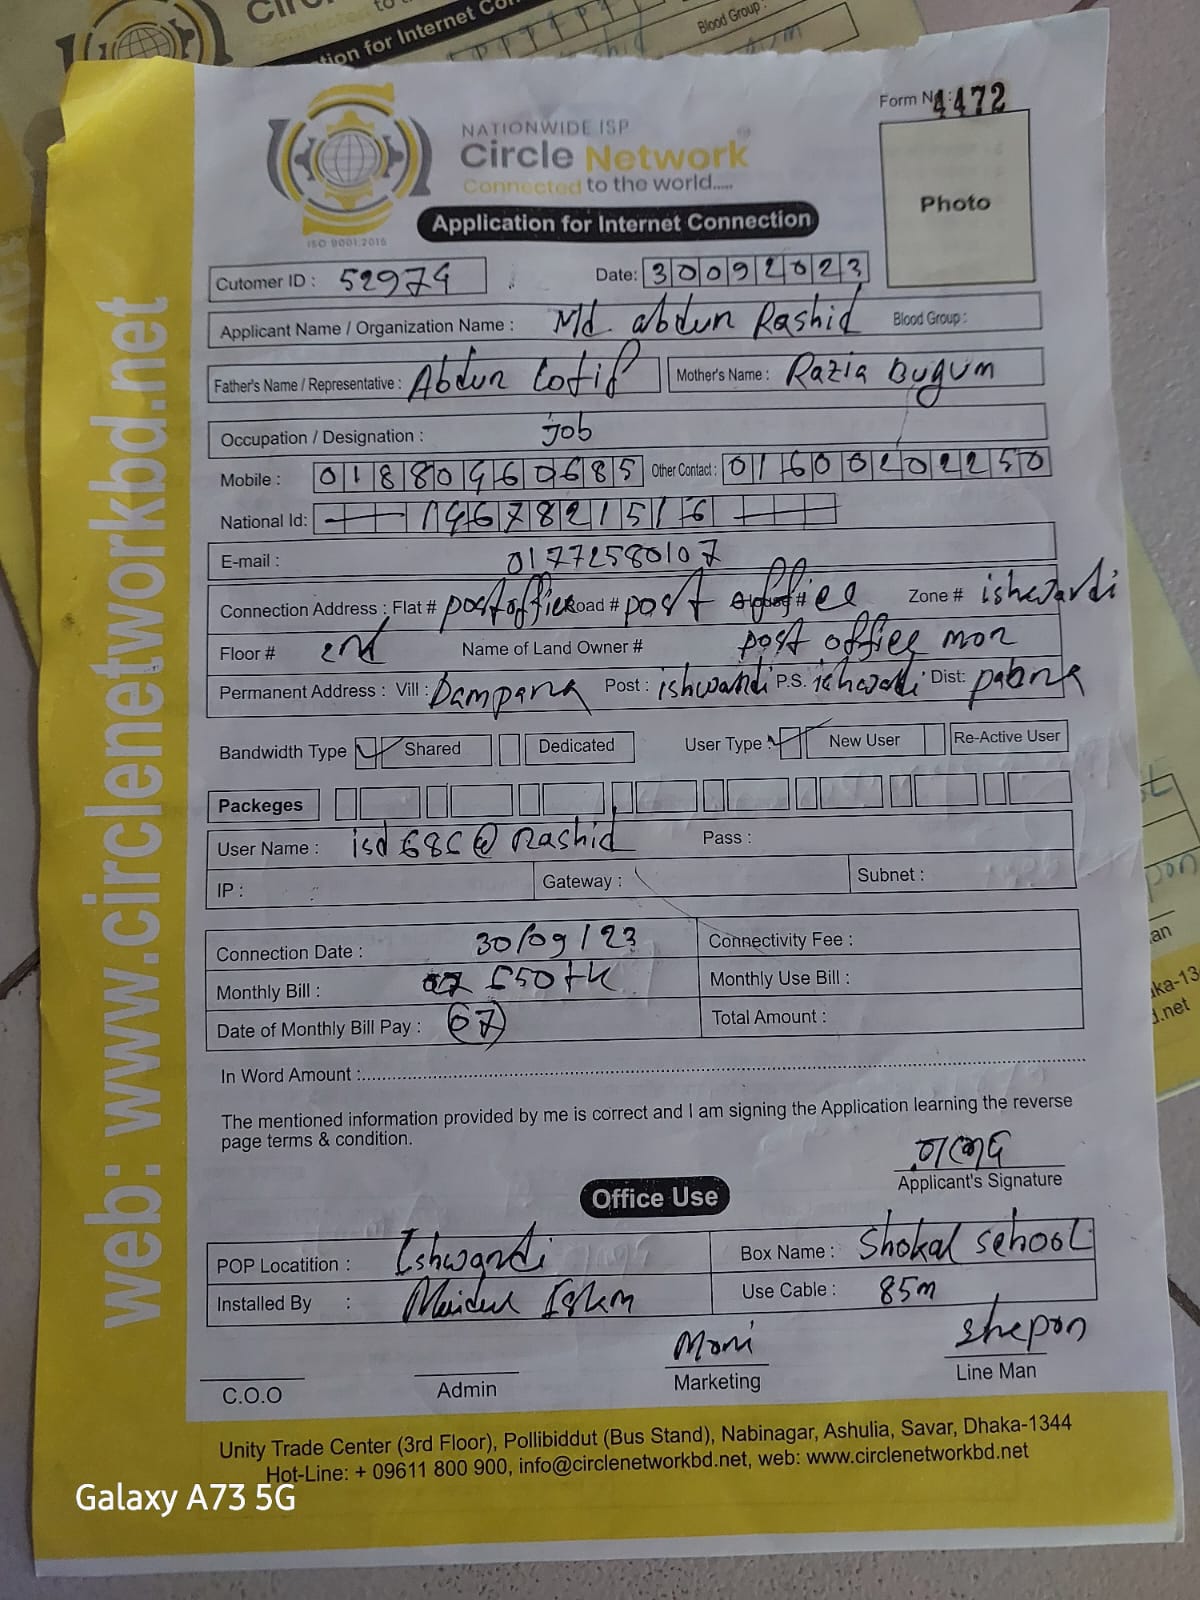 Form No: 4472
NATIONWIDE ISP
Circle Network
Connected to the world.....
ISO 9001:2015
Application for Internet Connection
Photo
Cutomer ID : 52974
Date: 30092023
Applicant Name / Organization Name : Md. abdur Rashid Blood Group :
Father's Name / Representative : Abdur Lotif Mother's Name : Razia Bugum
Occupation / Designation : job
Mobile : 01880960685 Other Contact : 01600202250
National Id: 1967821516
E-mail : 01772580107
Connection Address : Flat # post office Road # post office Zone # ishwardi
Floor # 2nd Name of Land Owner # post office mor
Permanent Address : Vill : Dampara Post : ishwardi P.S. ishwardi Dist: pabna
Bandwidth Type Shared Dedicated User Type : New User Re-Active User
Packeges
User Name : isd 685 @ Rashid Pass :
IP : Gateway : Subnet :
Connection Date : 30/09/23 Connectivity Fee :
Monthly Bill : 550 tk Monthly Use Bill :
Date of Monthly Bill Pay : 07 Total Amount :
In Word Amount :
The mentioned information provided by me is correct and I am signing the Application learning the reverse
page terms & condition.
Applicant's Signature
Office Use
POP Locatition : Ishwardi Box Name : Shokal school
Installed By : Use Cable : 85m
Moni Shepon
C.O.O Admin Marketing Line Man
Unity Trade Center (3rd Floor), Pollibiddut (Bus Stand), Nabinagar, Ashulia, Savar, Dhaka-1344
Hot-Line: + 09611 800 900, info@circlenetworkbd.net, web: www.circlenetworkbd.net
web: www.circlenetworkbd.net
Galaxy A73 5G
tion for Internet Con
Blood Group: